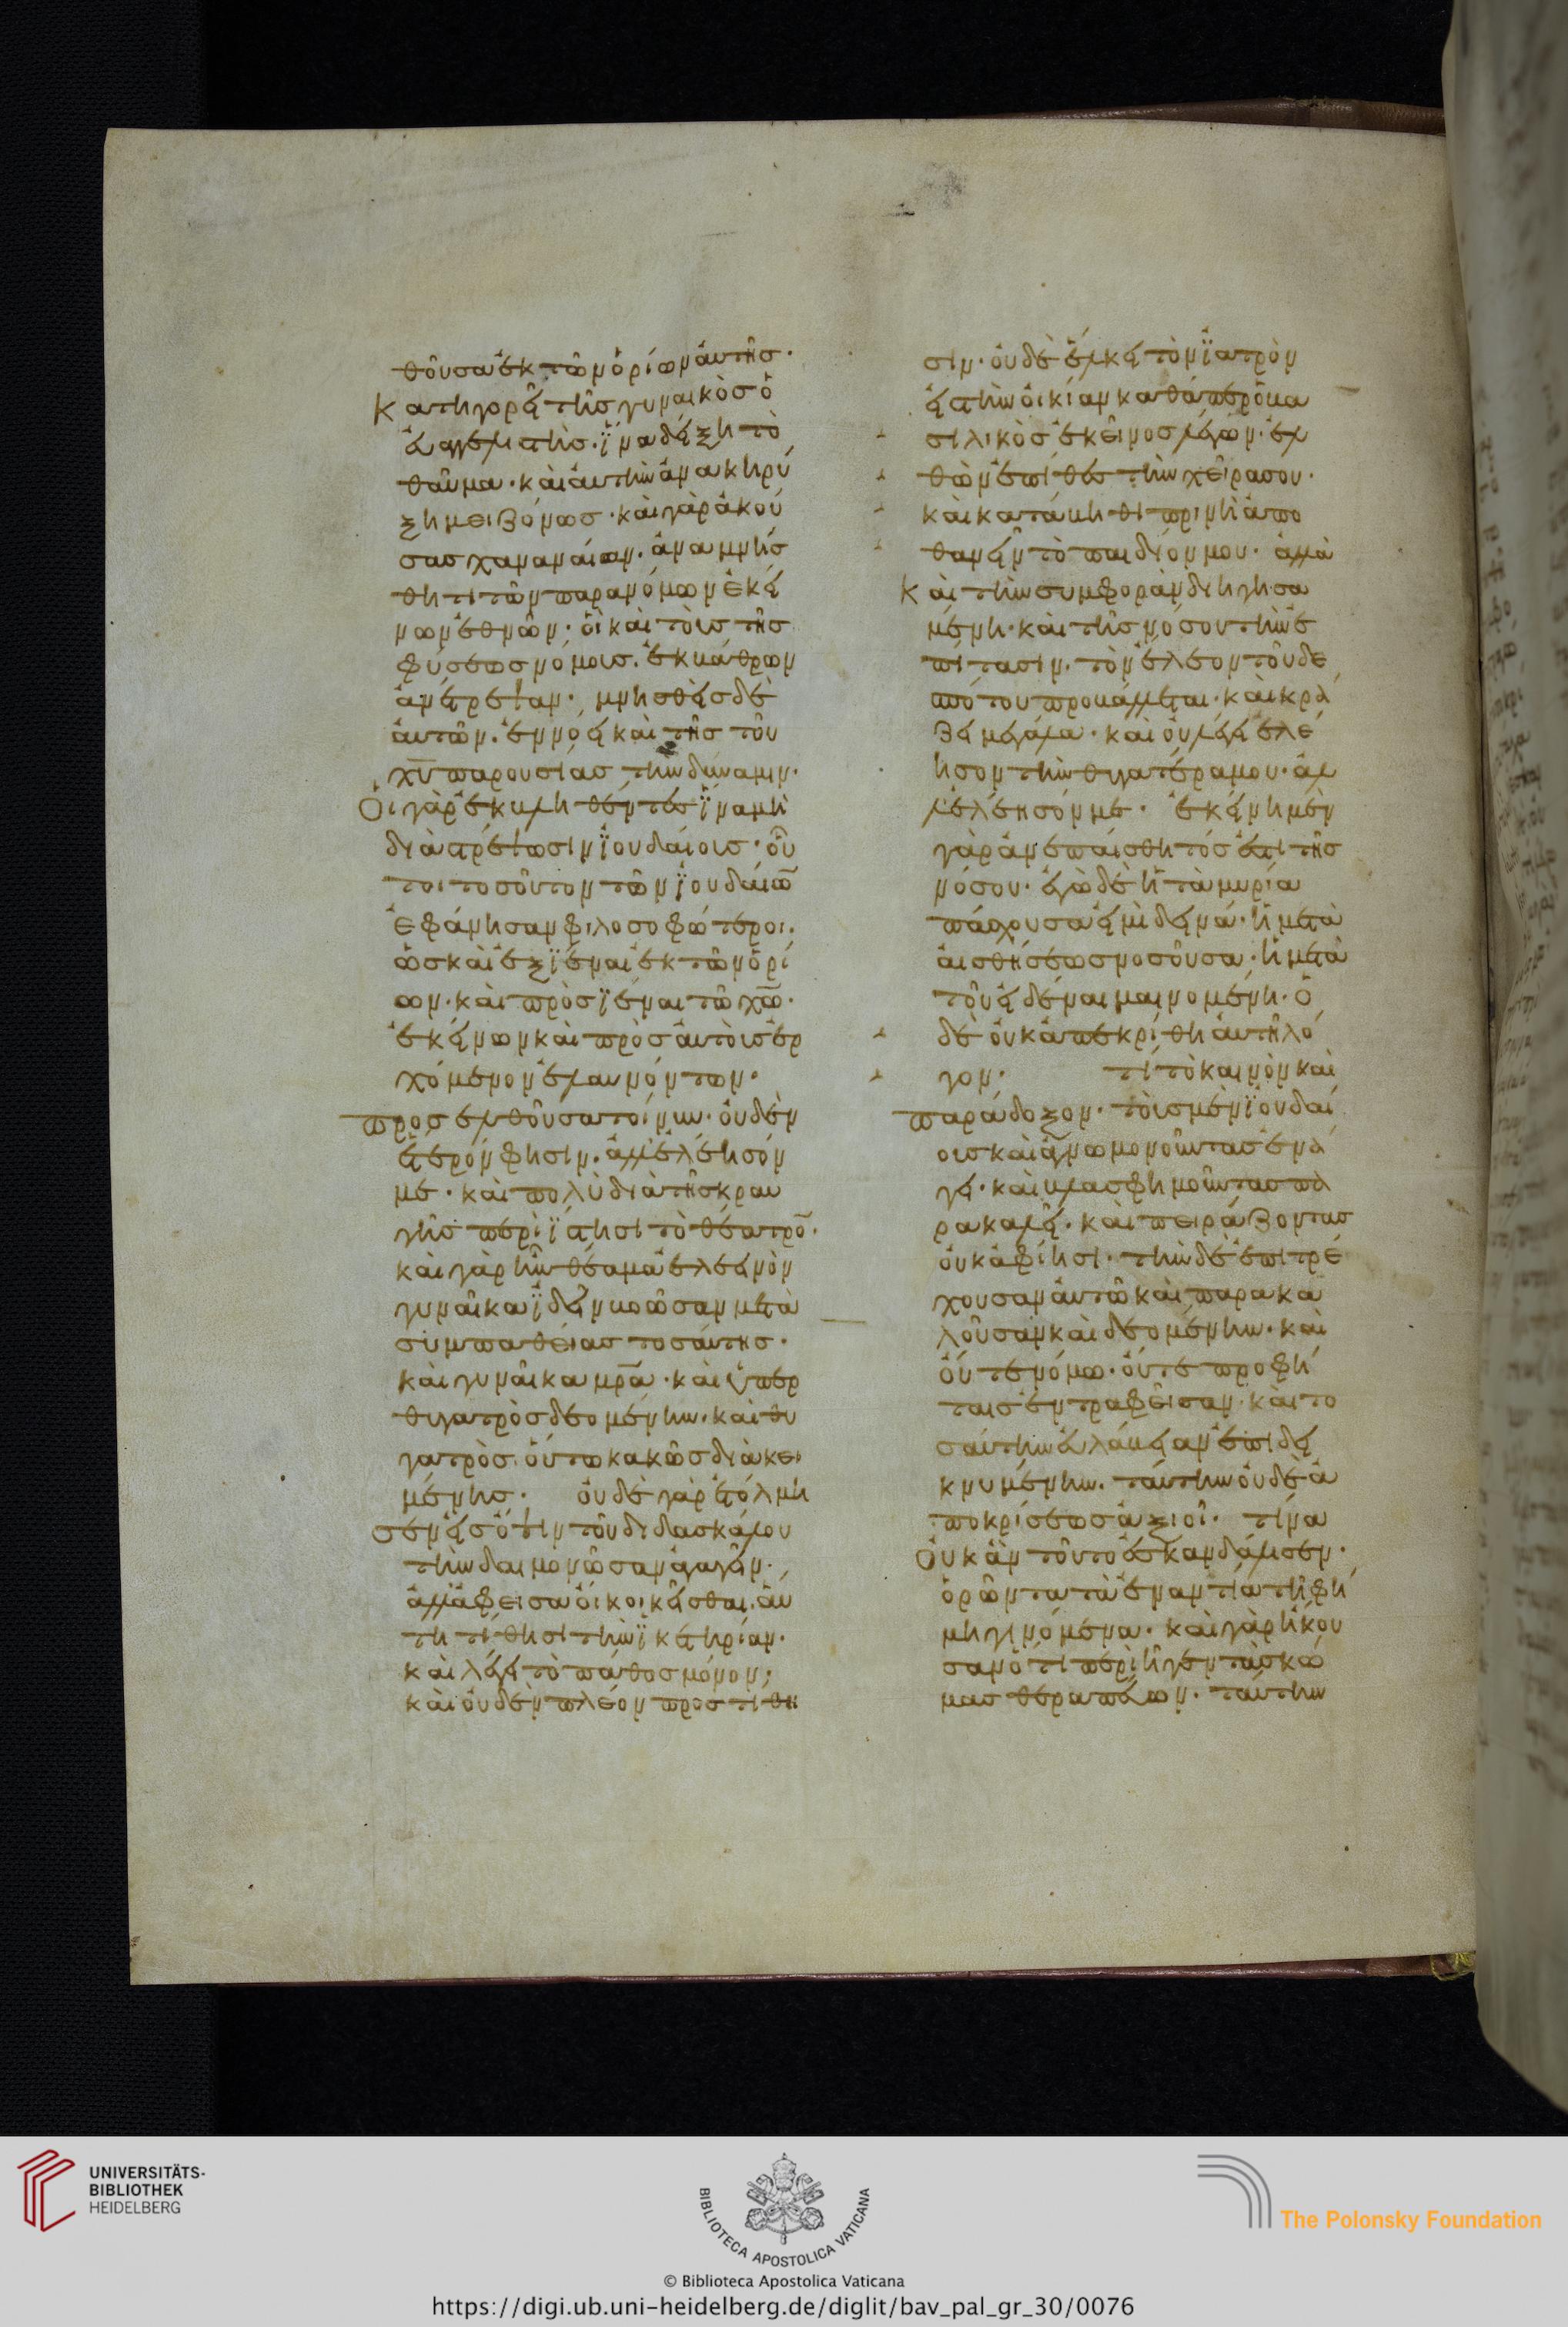 θοῦσα ἐκ τῶν ὁρίων αὐτῆς·
Κατηγορεῖ τῆς γυναικὸς ὁ
εὐαγγελιστὴς· ἵνα δείξη τὸ
θαῦμα· καὶ αὐτὴν ἀνακηρύ
ξη μειζόνως· καὶ γὰρ ἀκού
σας χαναναίαν· ἀναμνήσ
θητι τῶν παρανόμων ἐκεί
νων ἐθνῶν· οἳ καὶ τοὺς τῆς
φύσεως νόμους· ἐκ βάθρων
ἀνέτρεψαν· μνησθεὶς δὲ
αὐτῶν· ἐννόει καὶ τῆς τοῦ
χυ παρουσίας τὴν δύναμιν·
Οἱ γὰρ ἐκβληθέντες ἵνα μὴ
διαστρέψωσιν ἰουδαίους· οὗ
τοι τοσοῦτον τῶν ἰουδαίω
ἐφάνησαν φιλοσοφώτεροι·
ὡς καὶ ἐξϊέναι ἐκ τῶν ὁρί
ων· καὶ προσϊέναι τῶ χῶ·
ἐκείνων καὶ πρὸς αὐτοὺς ἐρ
χόμενον ἐλαυνόντων·
προσελθοῦσα τοίνυν· οὐδὲν
ἕτερόν φησιν· ἀλλ' ἐλέησόν
με· καὶ πολὺ διὰ τῆς κραυ
γῆς περιΐστησι τὸ θέατρο·
καὶ γὰρ ἦν θέαμα ἐλεεινὸν
γυναῖκα ἰδεῖν βοῶσαν μετὰ
συμπαθείας τοσαύτης·
καὶ γυναῖκα μρα· καὶ ὑπὲρ
θυγατρὸς δεομένην· καὶ θυ
γατρὸς οὕτω κακῶς διακει
μένης· οὐδὲ γὰρ ἐτόλμη
σεν εἰς ὄψιν τοῦ διδασκάλου
τὴν δαιμονῶσαν ἀγαγεῖν·
ἀλλ' ἀφεῖσα οἴκοι κεῖσθαι· αὐ
τὴ τίθησι τὴν ἱκετηρίαν·
καὶ λέγει τὸ πάθος μόνον·
καὶ οὐδὲν πλέον προστίθη
σιν· οὐδὲ ἕλκει τὸν ἰατρὸν
εἰς τὴν οἰκίαν καθάπερ ὁ βα
σιλικὸς ἐκεῖνος λέγων· ἐλ
θὼν ἐπίθες τὴν χεῖρα σου·
καὶ κατάβηθι πρινὴ ἀπο
θανεῖν τὸ παιδίον μου· ἀλλὰ
Καὶ τὴν συμφορὰν διηγησα
μένη· καὶ τῆς νόσου τὴν ἐ
πίτασιν· τὸν ἔλεον τοῦ δε
σπότου προβάλλεται· καὶ κρά
ζει μεγάλα· καὶ οὐ λέγει ἐλέ
ησον τὴν θυγατέρα μου· ἀλ
λ' ἐλέησόν με· ἐκείνη μὲν
γὰρ ἀνεπαίσθητός ἐστι τῆς
νόσου· ἐγὼ δὲ ἡ τὰ μυρία
πάσχουσά εἰμι δεινά· ἡ μετὰ
αἰσθήσεως νοσοῦσα· ἡ μετὰ
τοῦ εἰδέναι μαινομένη· ὁ
δὲ οὐκ ἀπεκρίθη αὐτῆ λό
γον· τί τὸ καινὸν καὶ
παράδοξον· τοὺς μὲν ἰουδαί
ους καὶ ἀγνωμονοῦντας ἐνά
γει· καὶ βλασφημοῦντας πα
ρακαλεῖ· καὶ πειράζοντας
οὐκ ἀφίησι· τὴν δὲ ἐπιτρέ
χουσαν αὐτῶ καὶ παρακα
λοῦσαν καὶ δεομένην· καὶ
οὔτε νόμω· οὔτε προφή
ταις ἐντραφεῖσαν· καὶ το
σαύτην εὐλάβειαν ἐπιδει
κνυμένην· ταύτην οὐδὲ ἀ
ποκρίσεως ἀξιοῖ· τίνα
Οὐκ ἂν τοῦτο ἐσκανδάλισεν·
ὁρῶντα τὰ ἐναντία τῆ φή
μη γινόμενα· καὶ γὰρ ἤκου
σαν ὅτι περιῆγεν τὰς κώ
μας θεραπεύων· ταύτην
UNIVERSITÄTS-
BIBLIOTHEK
HEIDELBERG
BIBLIOTECA APOSTOLICA VATICANA
The Polonsky Foundation
© Biblioteca Apostolica Vaticana
https://digi.ub.uni-heidelberg.de/diglit/bav_pal_gr_30/0076